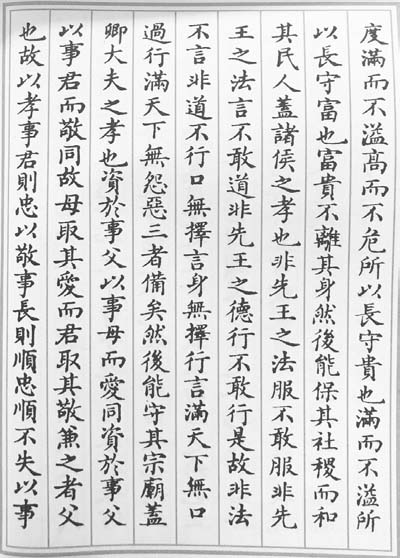 度滿而不溢高而不危所以長守貴也滿而不溢所
以長守富也富貴不離其身然後能保其社稷而和
其民人蓋諸侯之孝也非先王之法服不敢服非先
王之法言不敢道非先王之德行不敢行是故非法
不言非道不行口無擇言身無擇行言滿天下無口
過行滿天下無怨惡三者備矣然後能守其宗廟蓋
卿大夫之孝也資於事父以事母而愛同資於事父
以事君而敬同故母取其愛而君取其敬兼之者父
也故以孝事君則忠以敬事長則順忠順不失以事